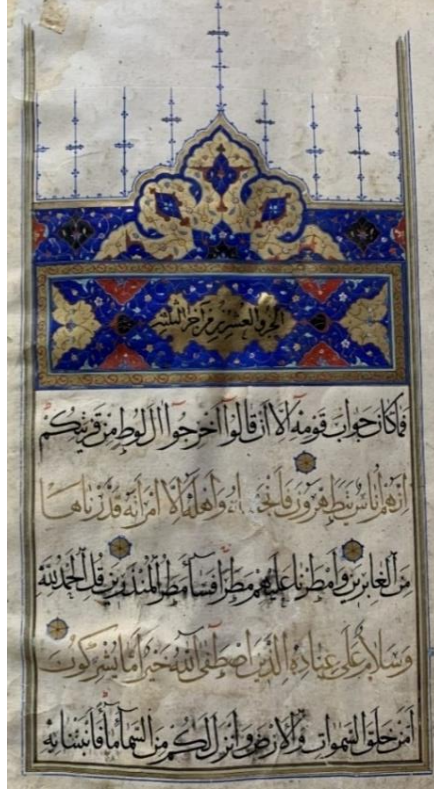 الجزو العشرين من اجزا الثلثين
فَمَا كَانَ جَوَابَ قَوْمِهِ اِلَّا اَنْ قَالُوا اَخْرِجُوا اٰلَ لُوطٍ مِنْ قَرْيَتِكُمْ
اِنَّهُمْ اُنَاسٌ يَتَطَهَّرُونَ فَاَنْجَيْنَاهُ وَاَهْلَهُ اِلَّا امْرَاَتَهُ قَدَّرْنَاهَا
مِنَ الْغَابِرِينَ وَاَمْطَرْنَا عَلَيْهِمْ مَطَرًا فَسَآءَ مَطَرُ الْمُنْذَرِينَ قُلِ الْحَمْدُ لِلّٰهِ
وَسَلَامٌ عَلَى عِبَادِهِ الَّذِينَ اصْطَفَى آللّٰهُ خَيْرٌ اَمَّا يُشْرِكُونَ
اَمَّنْ خَلَقَ السَّمٰوَاتِ وَالْاَرْضَ وَاَنْزَلَ لَكُمْ مِنَ السَّمَآءِ مَآءً فَاَنْبَتْنَا بِهِ